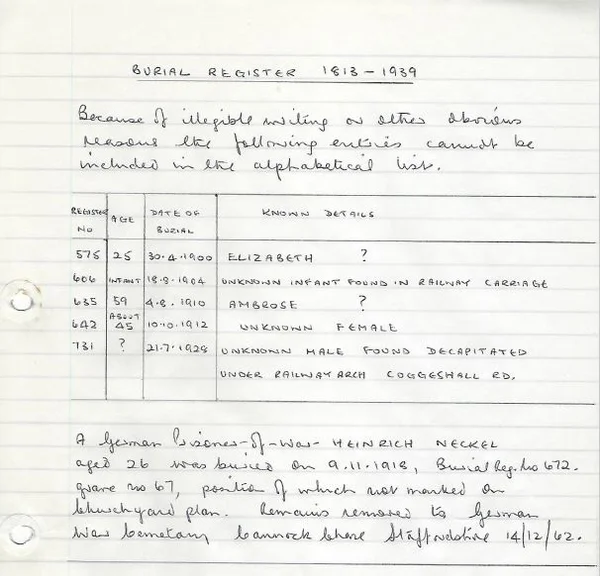 BURIAL REGISTER 1813 - 1939
Because of illegible writing or other obvious
reasons the following entries cannot be
included in the alphabetical list.
REGISTER NO AGE DATE OF BURIAL KNOWN DETAILS
575 25 30.4.1900 ELIZABETH ?
606 INFANT 18.8.1904 UNKNOWN INFANT FOUND IN RAILWAY CARRIAGE
635 59 4.8.1910 AMBROSE ?
642 ABOUT 45 10.10.1912 UNKNOWN FEMALE
731 ? 21.7.1928 UNKNOWN MALE FOUND DECAPITATED
UNDER RAILWAY ARCH COGGESHALL RD.
A German Prisoner-of-War- HEINRICH NECKEL
aged 26 was buried on 9.11.1918, Burial Reg. No 672.
grave no 67, position of which not marked on
Churchyard plan. Remains removed to German
War Cemetary Cannock Chase Staffordshire 14/12/62.